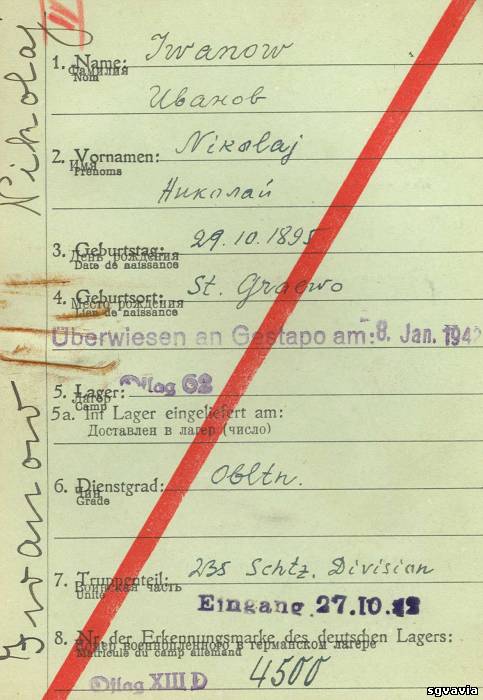 Nikolaj
Iwanow
1. Name: Iwanow
Фамилия
Nom
Иванов
2. Vornamen: Nikolaj
Имя
Prénoms
Николай
3. Geburtstag: 29.10.1895
День рождения
Date de naissance
4. Geburtsort: St. Graewo
Место рождения
Lieu de naissance
Überwiesen an Gestapo am: 8. Jan. 1942
5. Lager: Oflag 62
Лагерь
Camp
5a. Im Lager eingeliefert am:
Доставлен в лагерь (число)
6. Dienstgrad: Obltn.
Чин
Grade
7. Truppenteil: 235 Schtz. Division
Воинская часть
Unité
Eingang 27.10.
8. Nr. der Erkennungsmarke des deutschen Lagers:
Номер военнопленного в германском лагере
Matricule du camp allemand
4500
Oflag XIII D
sgvavia